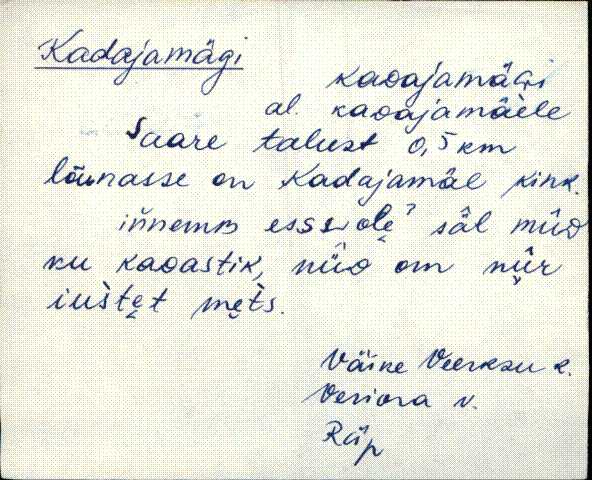 Kadajamägi
kaᴅajamäɢi
al. kaᴅajamäele
Saare talust 0,5 km
lõunasse on Kadajamäe kink.
iňnemʙ essɜ̭ olę̆ʾ säl müᴅ
ku kaᴅastik, nüᴅ om nu̬r
iuštęt męts.
Väike Veerksu k.
Veriora v.
Räp